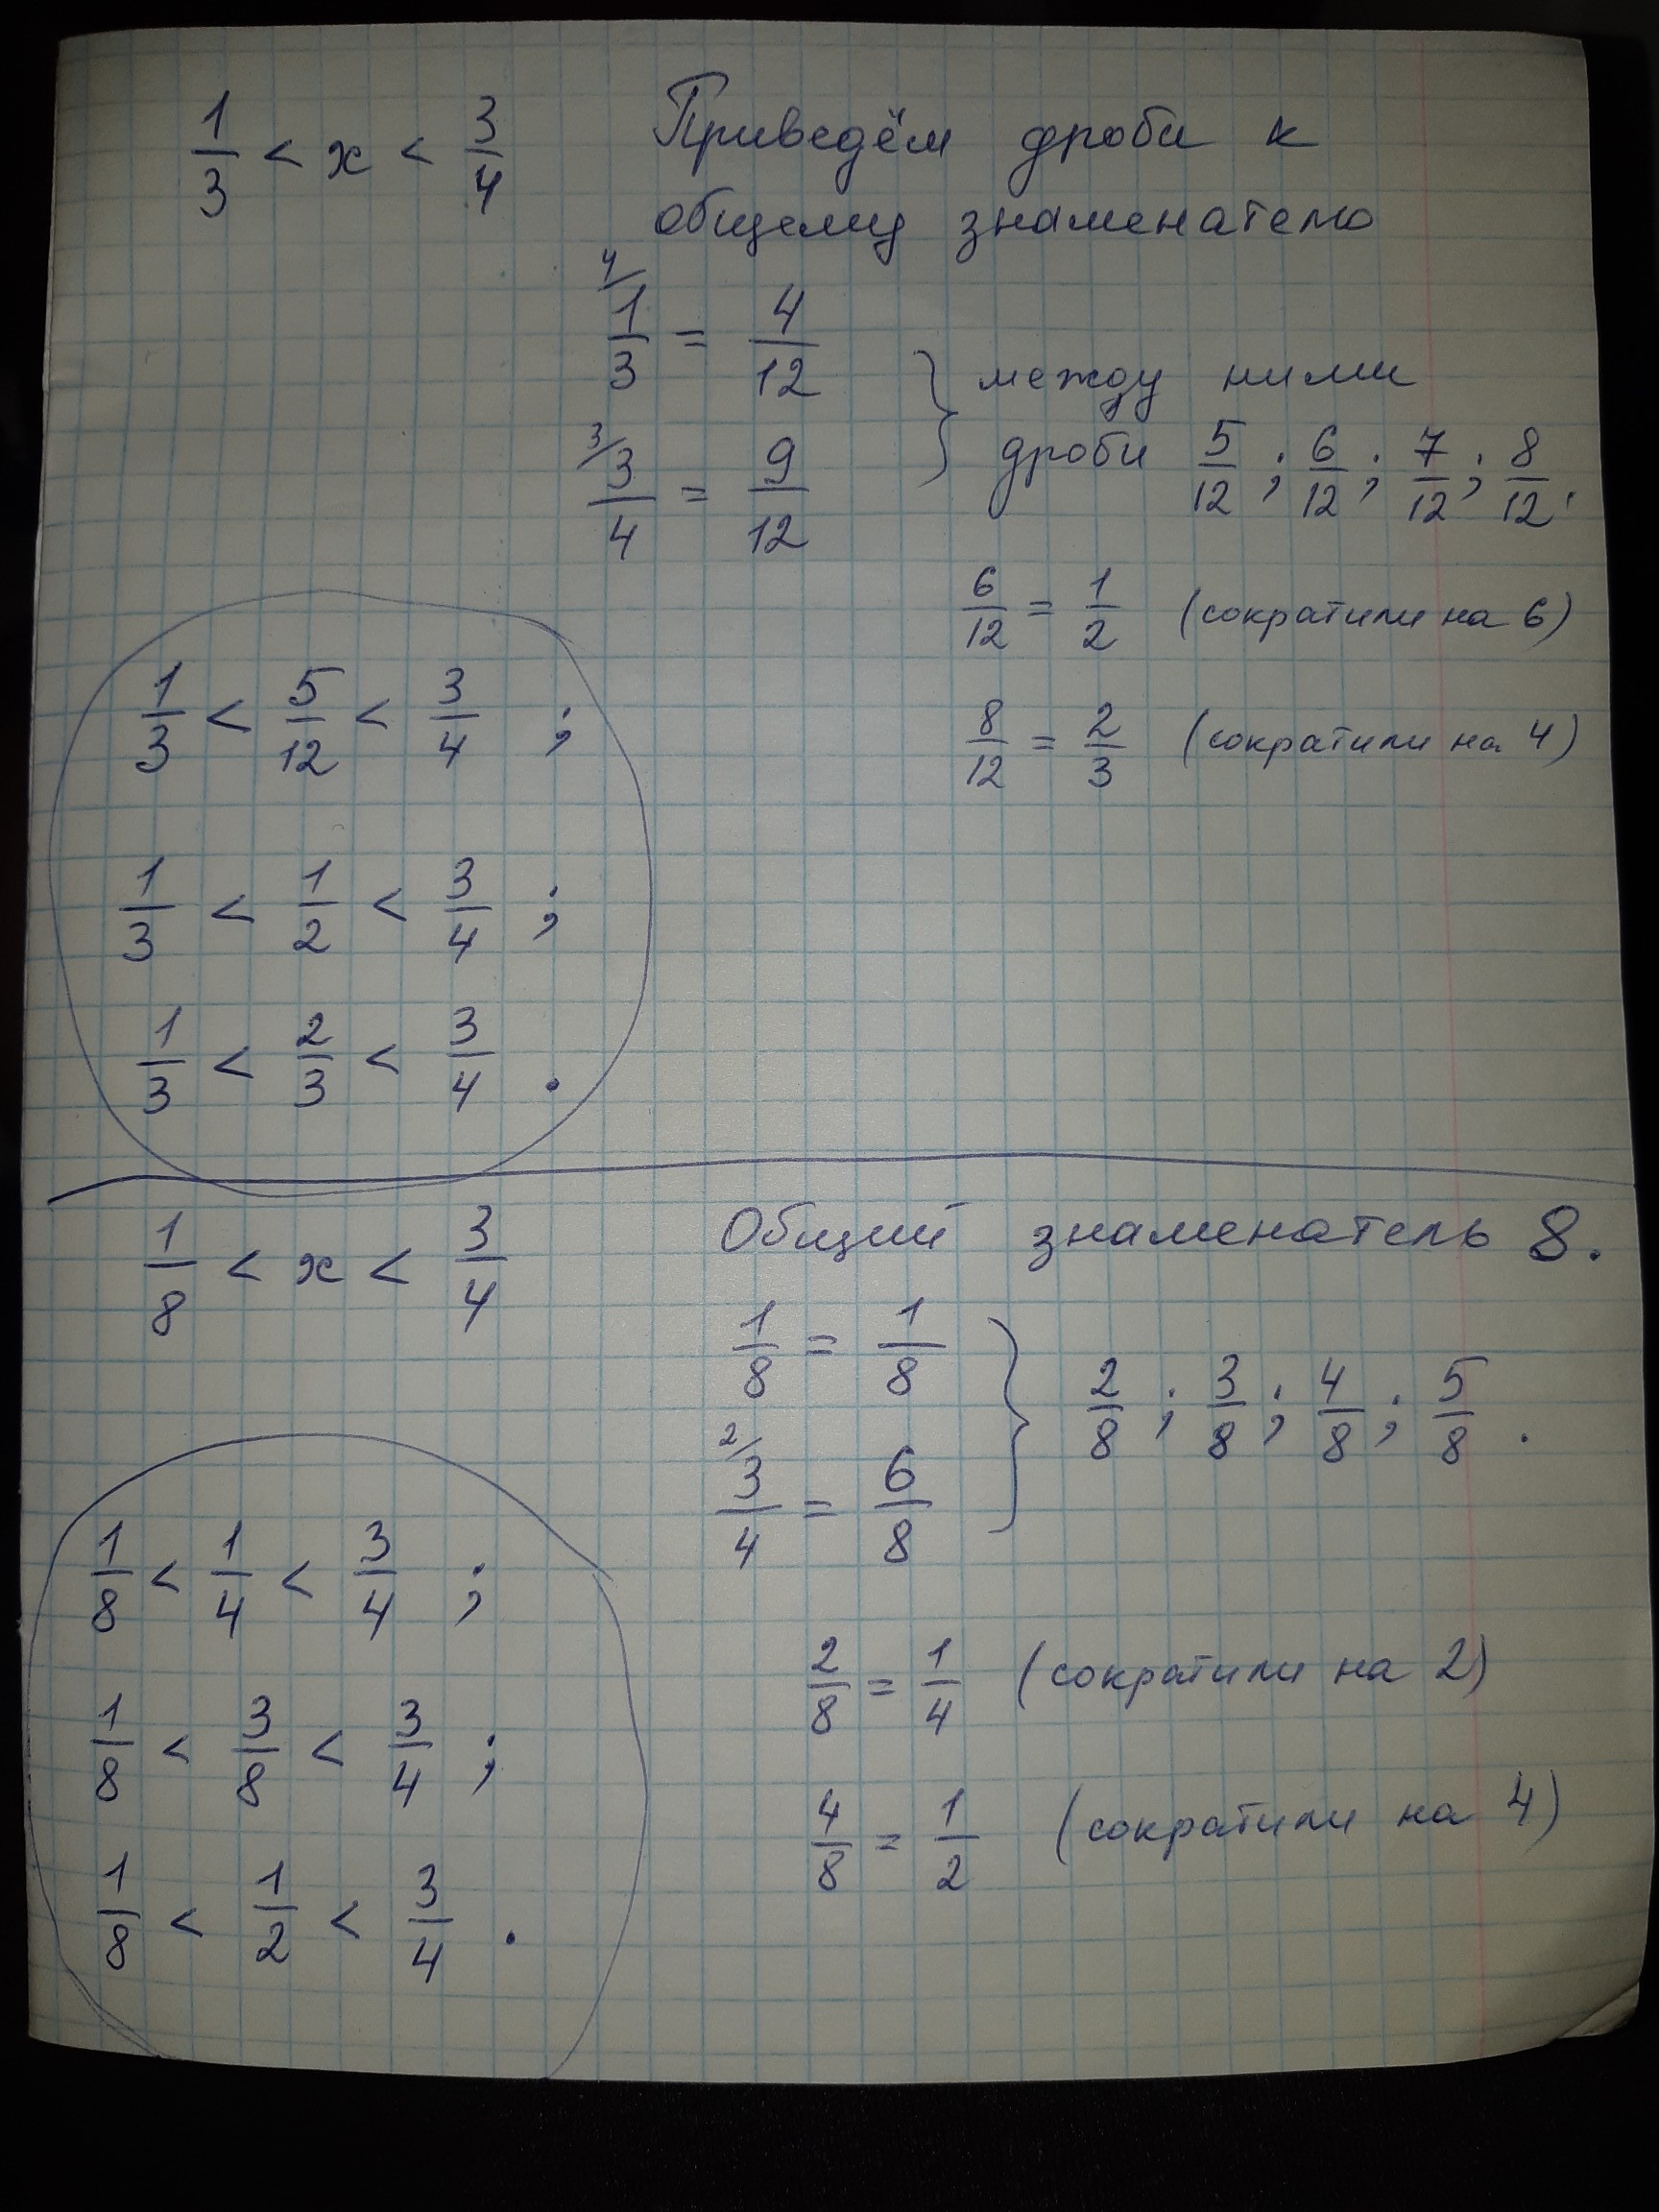 1/3 < x < 3/4 Приведём дроби к
общему знаменателю
4/ 1/3 = 4/12
между ними
3/ 3/4 = 9/12
дроби 5/12 ; 6/12 ; 7/12 ; 8/12.
6/12 = 1/2 (сократили на 6)
8/12 = 2/3 (сократили на 4)
1/3 < 5/12 < 3/4 ;
1/3 < 1/2 < 3/4 ;
1/3 < 2/3 < 3/4 .
1/8 < x < 3/4 Общий знаменатель 8.
1/8 = 1/8
2/ 3/4 = 6/8
2/8 ; 3/8 ; 4/8 ; 5/8 .
2/8 = 1/4 (сократили на 2)
4/8 = 1/2 (сократили на 4)
1/8 < 1/4 < 3/4 ;
1/8 < 3/8 < 3/4 ;
1/8 < 1/2 < 3/4 .